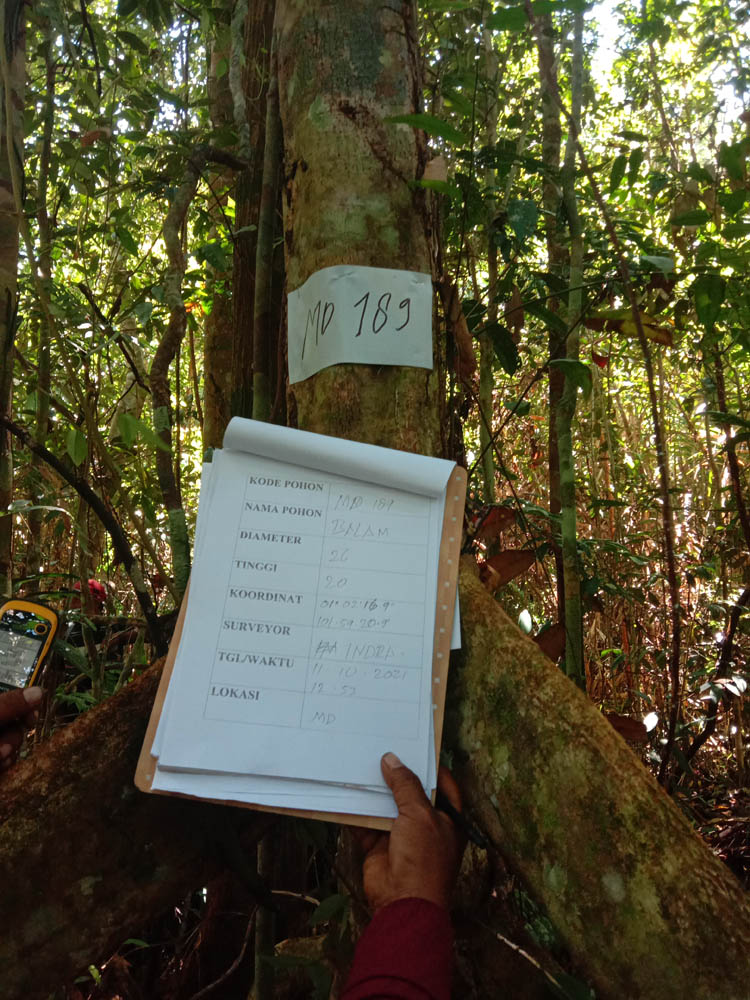 MD 189
KODE POHON MD 189
NAMA POHON BALAM
DIAMETER 26
TINGGI 20
KOORDINAT 01° 02' 16.9"
101.59.20.9
SURVEYOR INDRA
TGL/WAKTU 11.10.2021
12.53
LOKASI MD